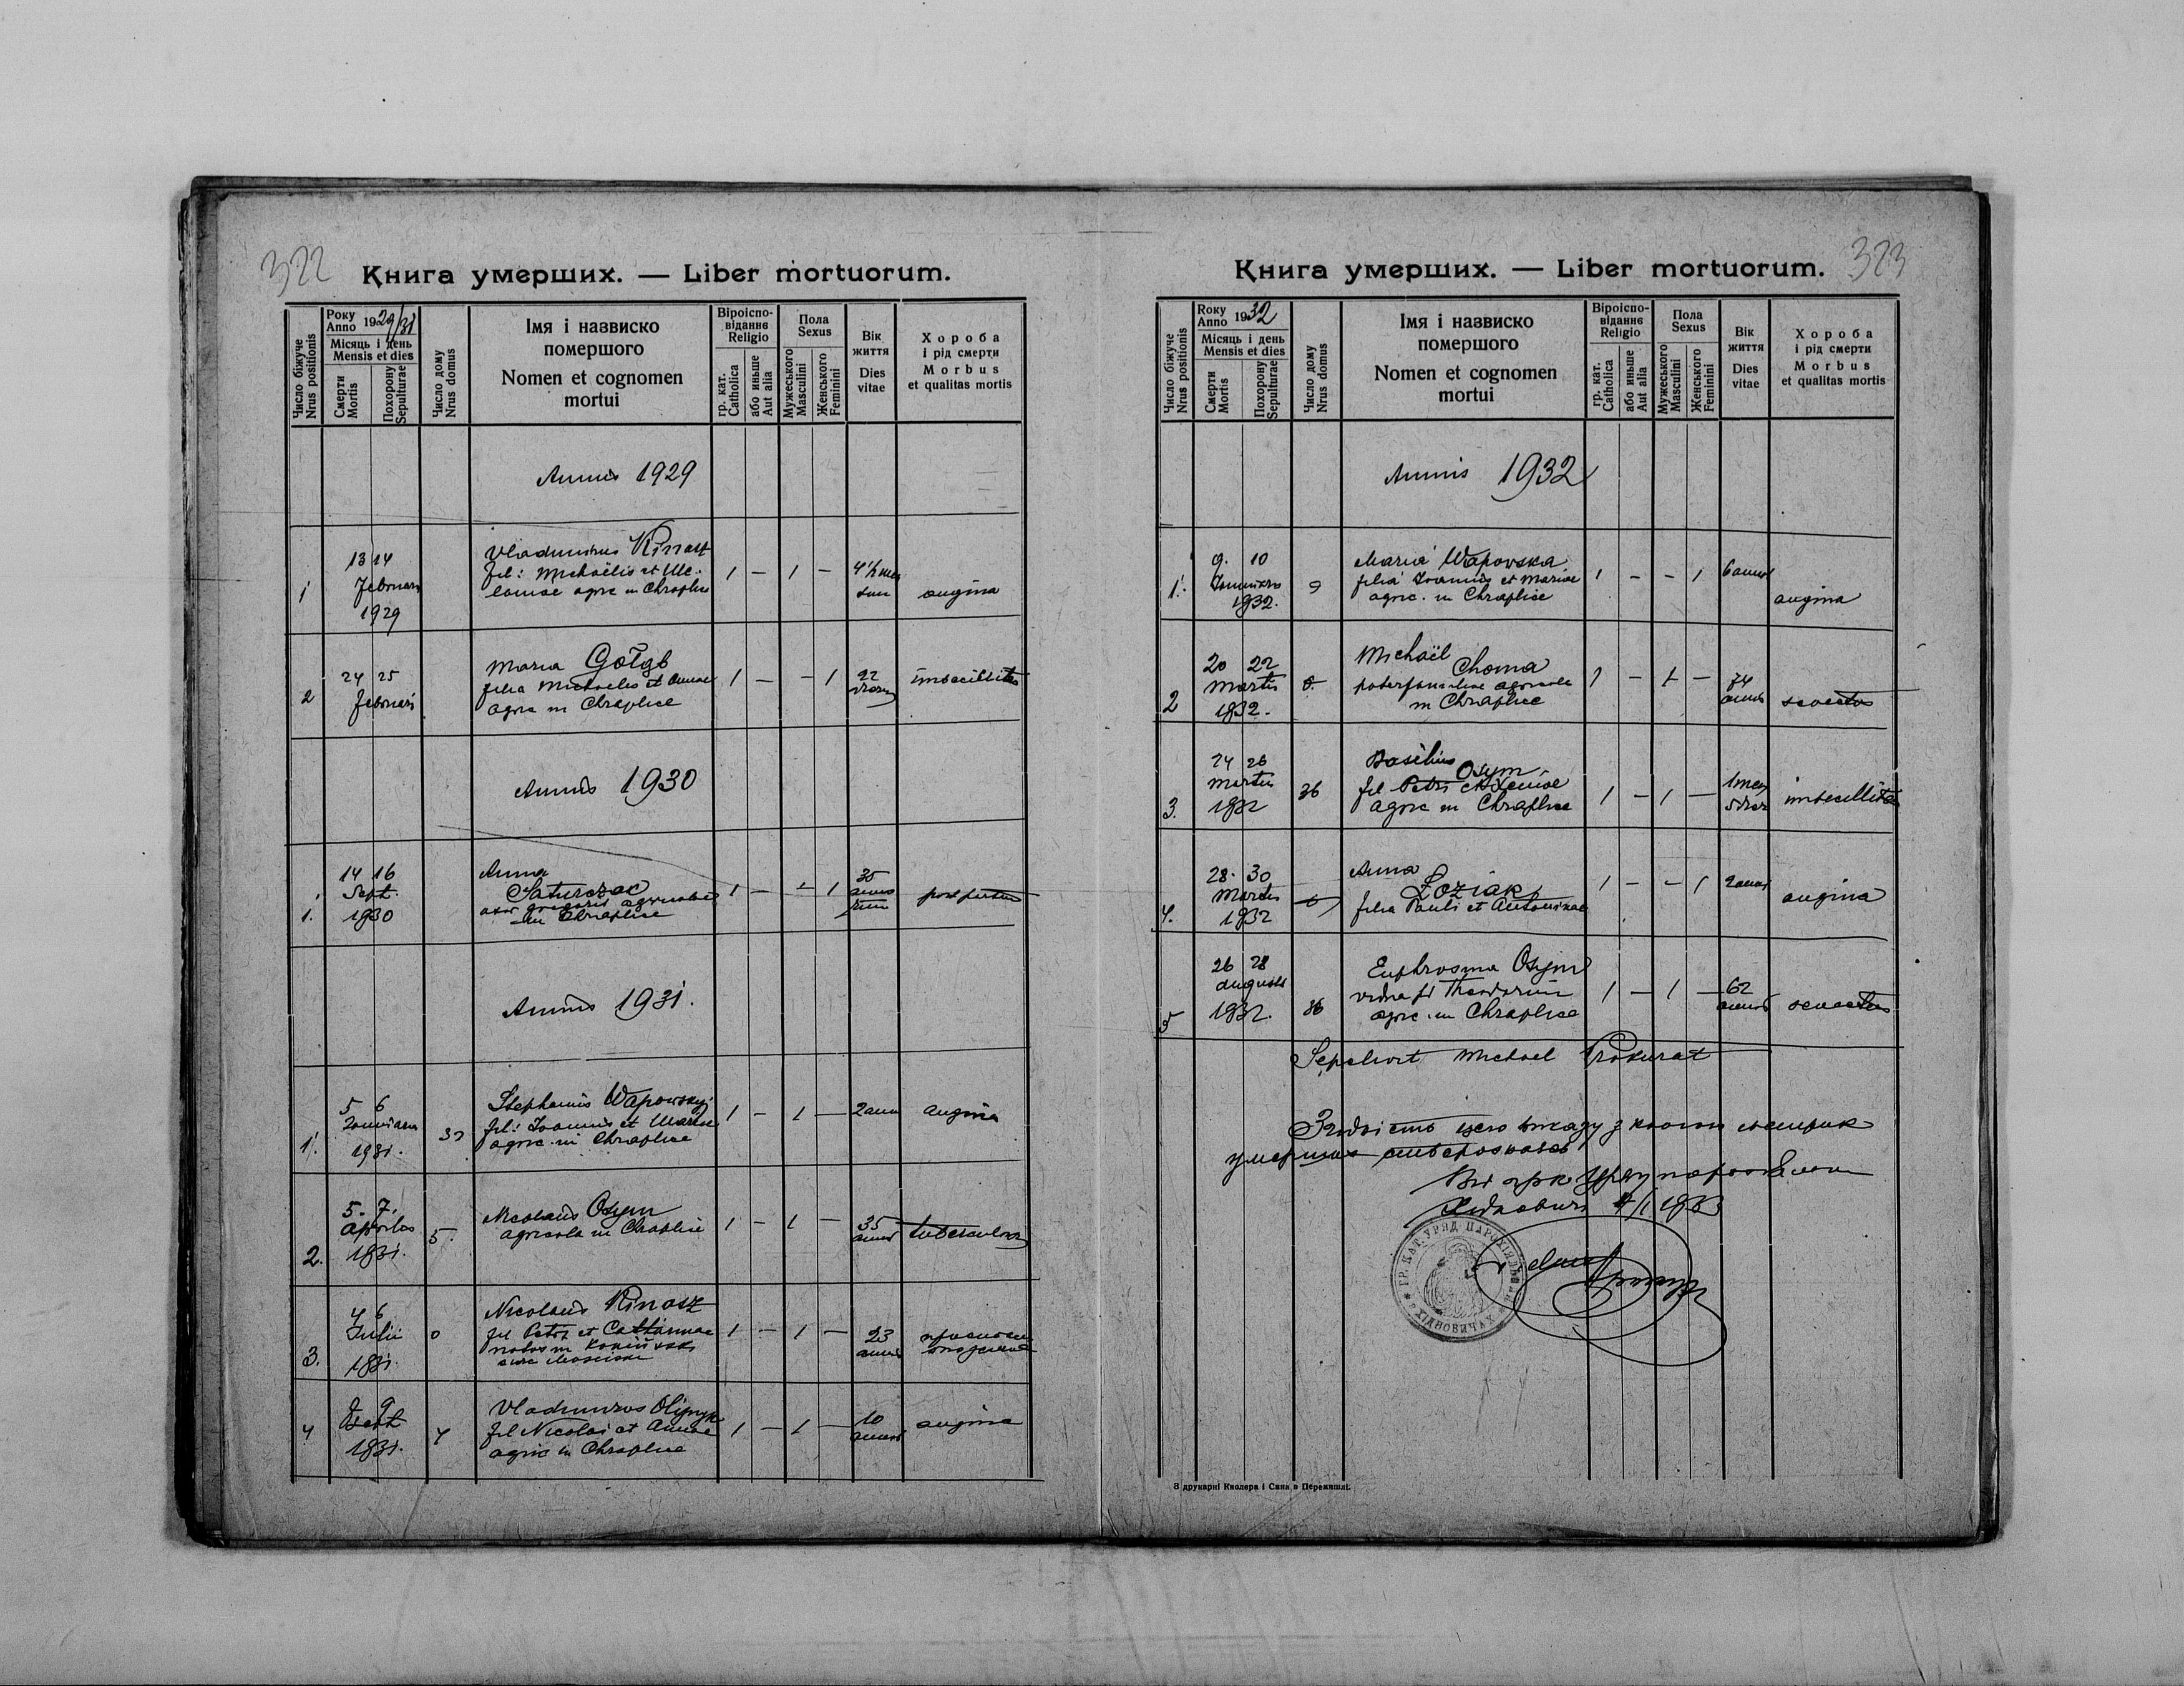 322
Книга умерших. — Liber mortuorum.
Число біжуче
Nrus positionis
Року
Anno 1929/31
Місяць і день
Mensis et dies
Смерти
Mortis
Похорону
Sepulturae
Число дому
Nrus domus
Імя і назвиско
помершого
Nomen et cognomen
mortui
Віроіспо-
віданнє
Religio
гр. кат.
Catholica
або иньше
Aut alia
Пола
Sexus
Мужеського
Masculini
Женського
Feminini
Вік
життя
Dies
vitae
Хороба
і рід смерти
Morbus
et qualitas mortis
Annus 1929
1 13 14 Februari 1929
Vladimirus Kinasz
fil: Michaëlis et
agric in Chraplice
1 — 1 —
angina
2 24 25 Februari
Maria Gołąb
filia Michaelis et Annae
agric in Chraplice
1 — — 1
22
imbecillitas
Annus 1930
1. 14 16 Sept. 1930
Anna
Saturczak
uxor Gregorii agricolae
in Chraplice
1 — — 1
35
post partum
Annus 1931.
1. 5 6 Januarii 1931.
Stephanus Wapowskyj
fil: Joannis et Mariae
agric. in Chraplice
1 — 1 —
2 ann
angina
2. 5. 7. Aprilis 1931. 5.
Nicolaus Osym
agricola in Chraplice
1 — 1 —
35 annos
tuberculosa
3. 4 6 Julii 1931. 0
Nicolaus Kinasz
fil Petri et Catharinae
1 — 1 —
23 annos
4 8 9 Sept 1931. 4
Vladimirus Olijnyk
fil Nicolai et Annae
agric in Chraplice
1 — 1 —
10 annos
angina
323
Книга умерших. — Liber mortuorum.
Число біжуче
Nrus positionis
Року
Anno 1932
Місяць і день
Mensis et dies
Смерти
Mortis
Похорону
Sepulturae
Число дому
Nrus domus
Імя і назвиско
помершого
Nomen et cognomen
mortui
Віроіспо-
віданнє
Religio
гр. кат.
Catholica
або иньше
Aut alia
Пола
Sexus
Мужеського
Masculini
Женського
Feminini
Вік
життя
Dies
vitae
Хороба
і рід смерти
Morbus
et qualitas mortis
Annus 1932
1. 9. 10 1932. 9
Maria Wapowska
filia Joannis et Mariae
agric. in Chraplice
1 — — 1
6 annos
angina
2 20 22 Martii 1932. 8.
Michaël
Choma
agricola
in Chraplice
1 — 1 —
74 annos
senectus
3. 24 26 Martii 1932 36
Basilius
Osym
fil Petri et Xeniae
agric in Chraplice
1 — 1 —
1 men
imbecillitas
4. 28. 30 Martii 1932 6
Anna
Łoziak
filia Pauli et Antoninae
1 — — 1
2 annos
angina
5 26 28 Augusti 1932. 36
Euphrosina Osym
vidua Theodorum
agric. in Chraplice
1 — 1 —
62 annos
senectus
Sepelivit Michael Prokurat
Згідність цего виказу з книгою метрик
умерших стверджаю
4/1 1933
ГР. КАТ. УРЯД ПАРОХІЯЛЬНИЙ
ХІДНОВИЧАХ
З друкарні Кнолера і Сина в Перемишлі.